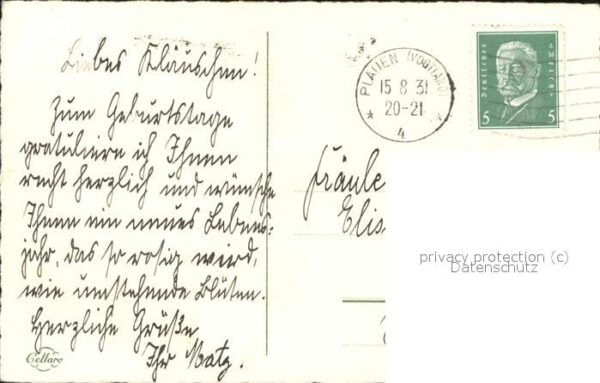 Liebes Kläuschen!
Zum Geburtstage
gratuliere ich Ihnen
recht herzlich und wünsche
Ihnen ein neues Lebens-
jahr, das so rosig wird,
wie umstehende Blüten.
Herzliche Grüße
Ihr Matz.
Cellaro
PLAUEN (VOGTLAND)
15 8 31
20-21
* 4 *
Deutsches Reich
5 5
Fräule
Elis
privacy protection (c)
Datenschutz